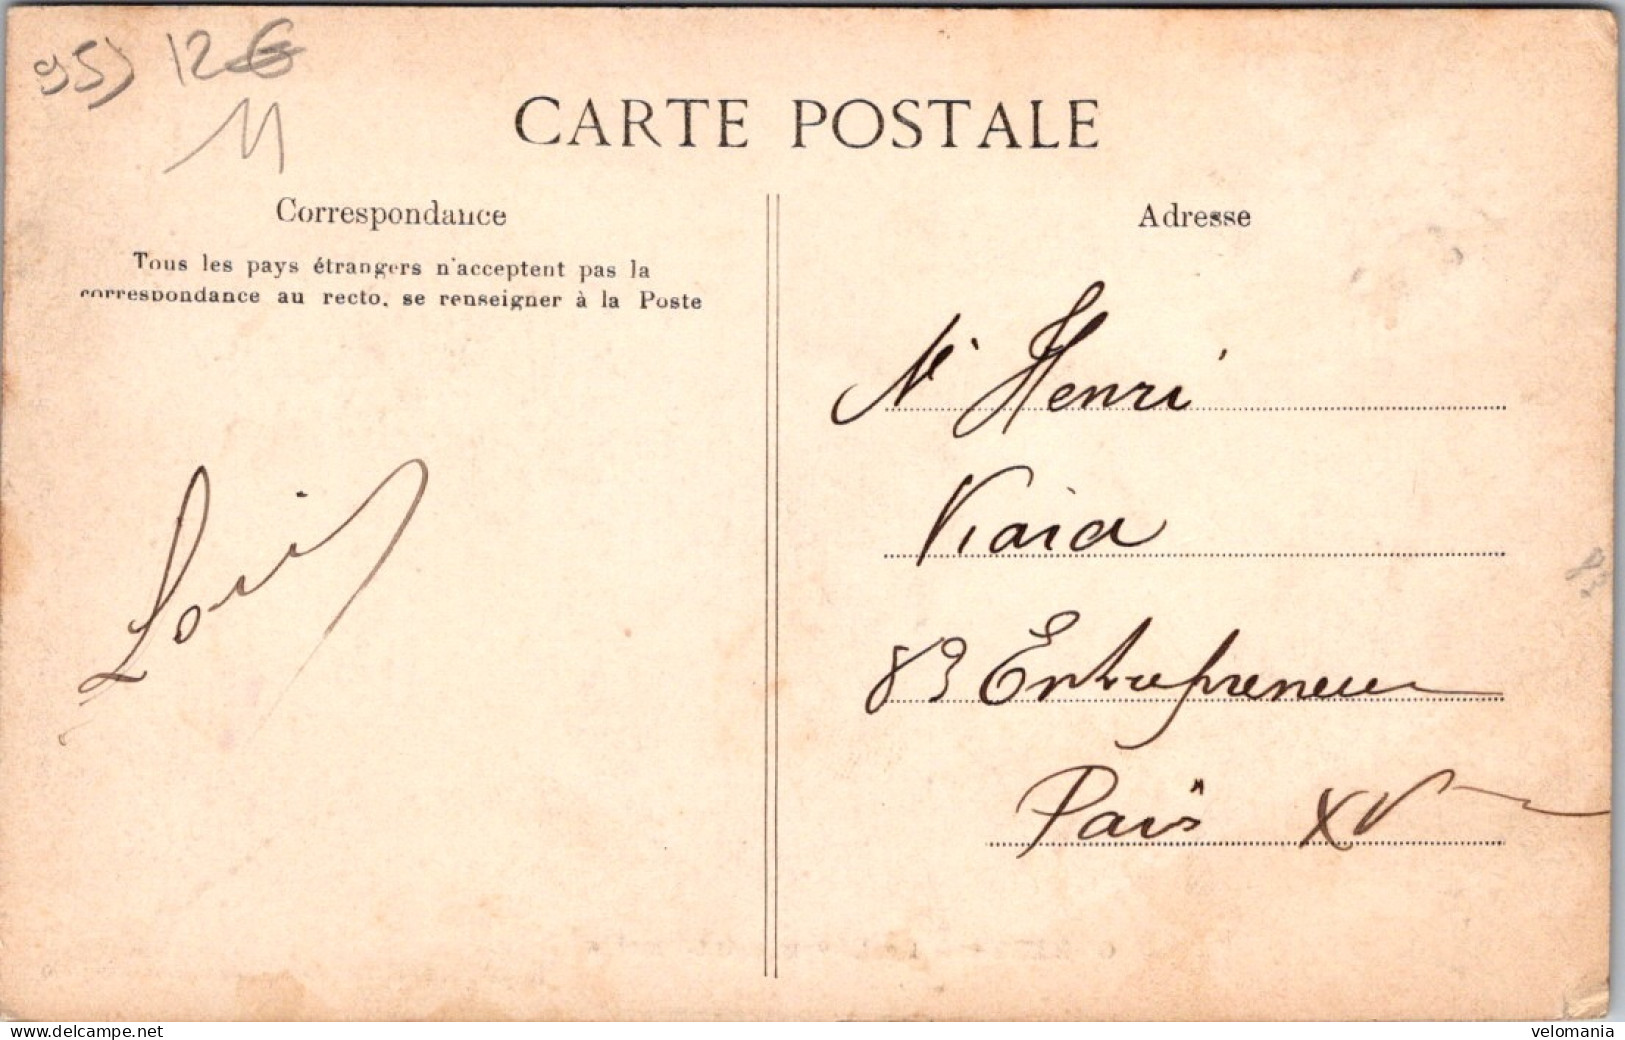 95) 12€
11
CARTE POSTALE
Correspondance
Tous les pays étrangers n'acceptent pas la
correspondance au recto, se renseigner à la Poste
Adresse
Mr Henri
Viaia
83 Entrepreneur
Paris XV
Louis
www.delcampe.net
velomania